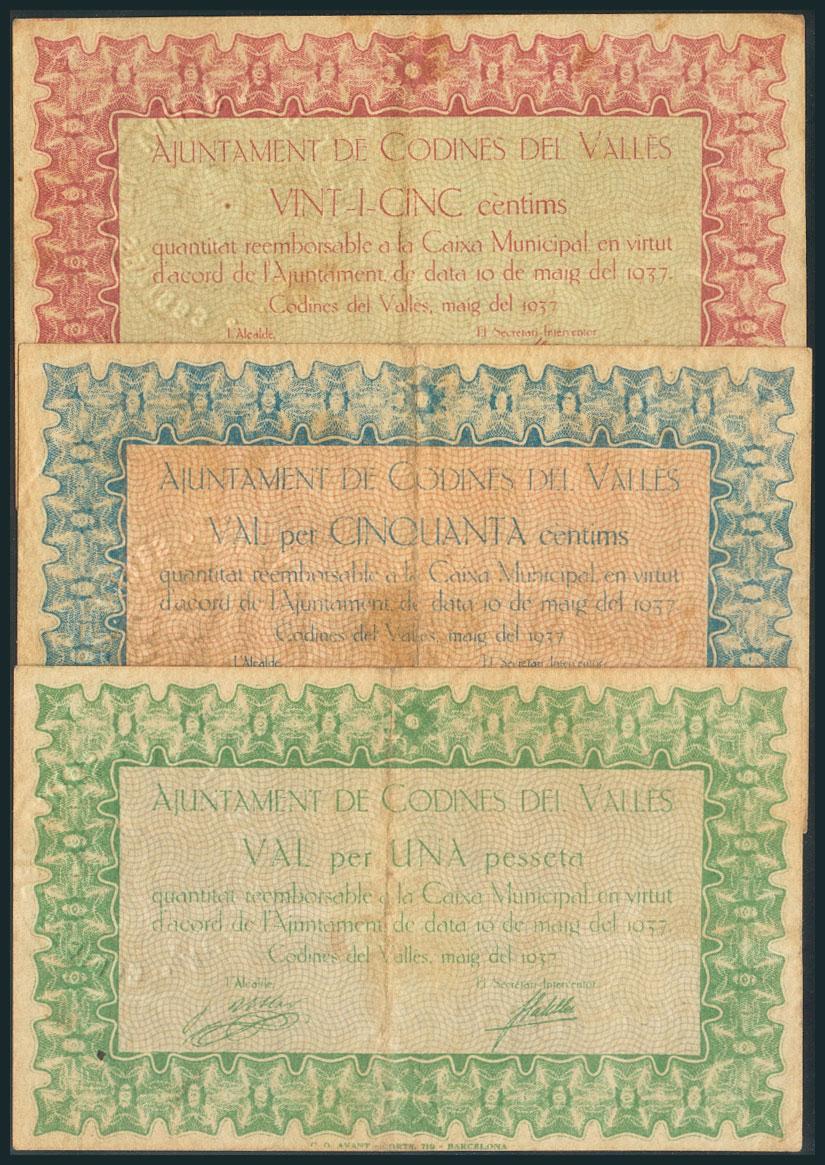 AJUNTAMENT DE CODINES DEL VALLÈS
VINT-I-CINC cèntims
quantitat reemborsable a la Caixa Municipal, en virtut
d'acord de l'Ajuntament, de data 10 de maig del 1937.
Codines del Vallès, maig del 1937
l'Alcalde,
El Secretari-Interventor
AJUNTAMENT DE CODINES DEL VALLÈS
VAL per CINQUANTA centims
quantitat reemborsable a la Caixa Municipal, en virtut
d'acord de l'Ajuntament, de data 10 de maig del 1937
Codines del Vallès, maig del 1937
l'Alcalde,
El Secretari-Interventor
AJUNTAMENT DE CODINES DEL VALLÈS
VAL per UNA pesseta
quantitat reemborsable a la Caixa Municipal, en virtut
d'acord de l'Ajuntament de data 10 de maig del 1937.
Codines del Vallès, maig del 1937
l'Alcalde,
El Secretari-Interventor
G. O. AVANT - CORTS, 719 - BARCELONA